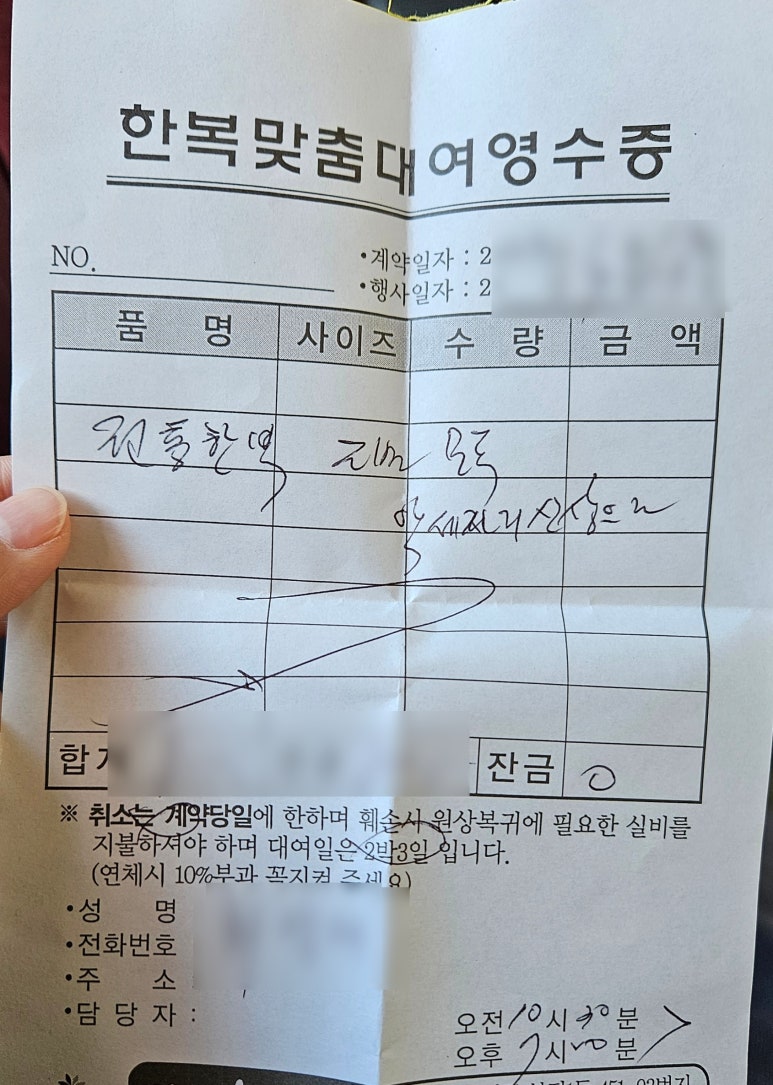 한복맞춤대여영수증
NO.
•계약일자 : 2
•행사일자 : 2
품 명 사이즈 수 량 금 액
전통한복
앞 세자리 신상으로
합계 잔금 0
※ 취소는 계약당일에 한하며 훼손시 원상복귀에 필요한 실비를
지불하셔야 하며 대여일은 2박3일 입니다.
(연체시 10%부과 꼭지켜 주세요)
•성 명
•전화번호
•주 소
•담 당 자 :
오전 10시 30분
오후 7시 00분